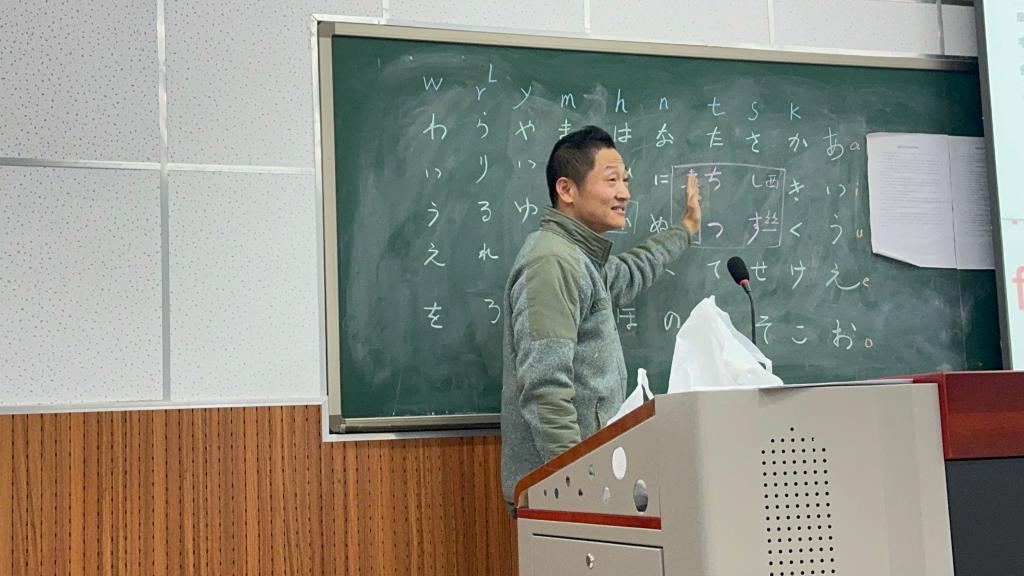 L
w r y m h n t S k
わ ら や ま は な た さ か あ a
い り い に ち し 西 き い i
う る ゆ ぬ つ す 丝 く う u
え れ て せ け え e
を ろ ほ の そ こ お o